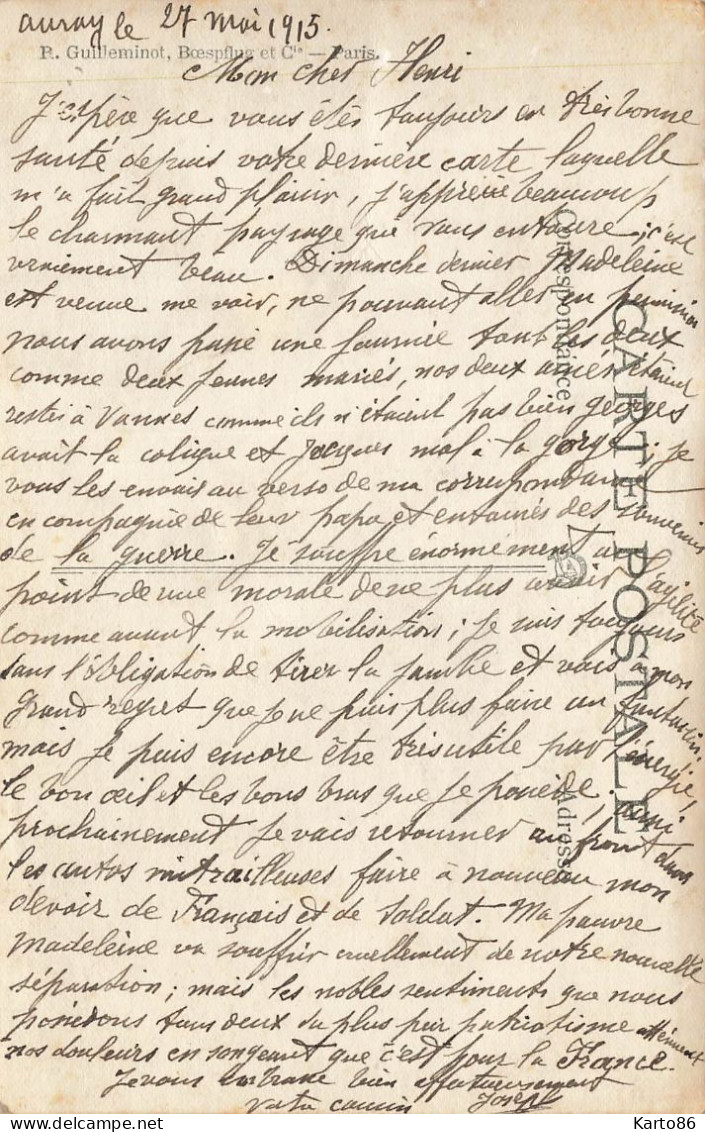 auray le 27 mai 1915.
R. Guilleminot, Bœspflug et Cie — Paris.
Mon cher Henri
J'espère que vous êtes toujours en très bonne
santé depuis votre dernière carte laquelle
m'a fait grand plaisir, j'apprécie beaucoup
le charmant paysage que vous entoure; c'est
vraiement beau. Dimanche dernier Madeleine
est venue me voir, ne pouvant aller en permission
nous avons passé une journée tout les deux
comme deux jeunes mariés, nos deux aînés étaient
restés à Vannes comme ils n'étaient pas bien georges
avait la colique et Jacques mal à la gorge. Je
vous les envoie au verso de ma correspondance
en compagnie de leur papa et entourés des souvenirs
de la guerre. Je souffre énormément au
point de vue morale de ne plus avoir l'agilité
comme avant la mobilisation; je suis toujours
dans l'obligation de tirer la jambe et vois à mon
grand regret que je ne puis plus faire un fantassin,
mais je puis encore être très utile par l'énergie,
le bon œil et les bons bras que je possède, aussi
prochainement je vais retourner au front dans
les autos mitrailleuses faire à nouveau mon
devoir de Français et de soldat. Ma pauvre
Madeleine va souffrir cruellement de notre nouvelle
séparation; mais les nobles sentiments que nous
possédons tous deux du plus pur patriotisme atténuent
nos douleurs en songeant que c'est pour la France.
Je vous embrasse bien affectueusement
votre cousin Joseph
CARTE POSTALE
Correspondance
Adresse
Karto86